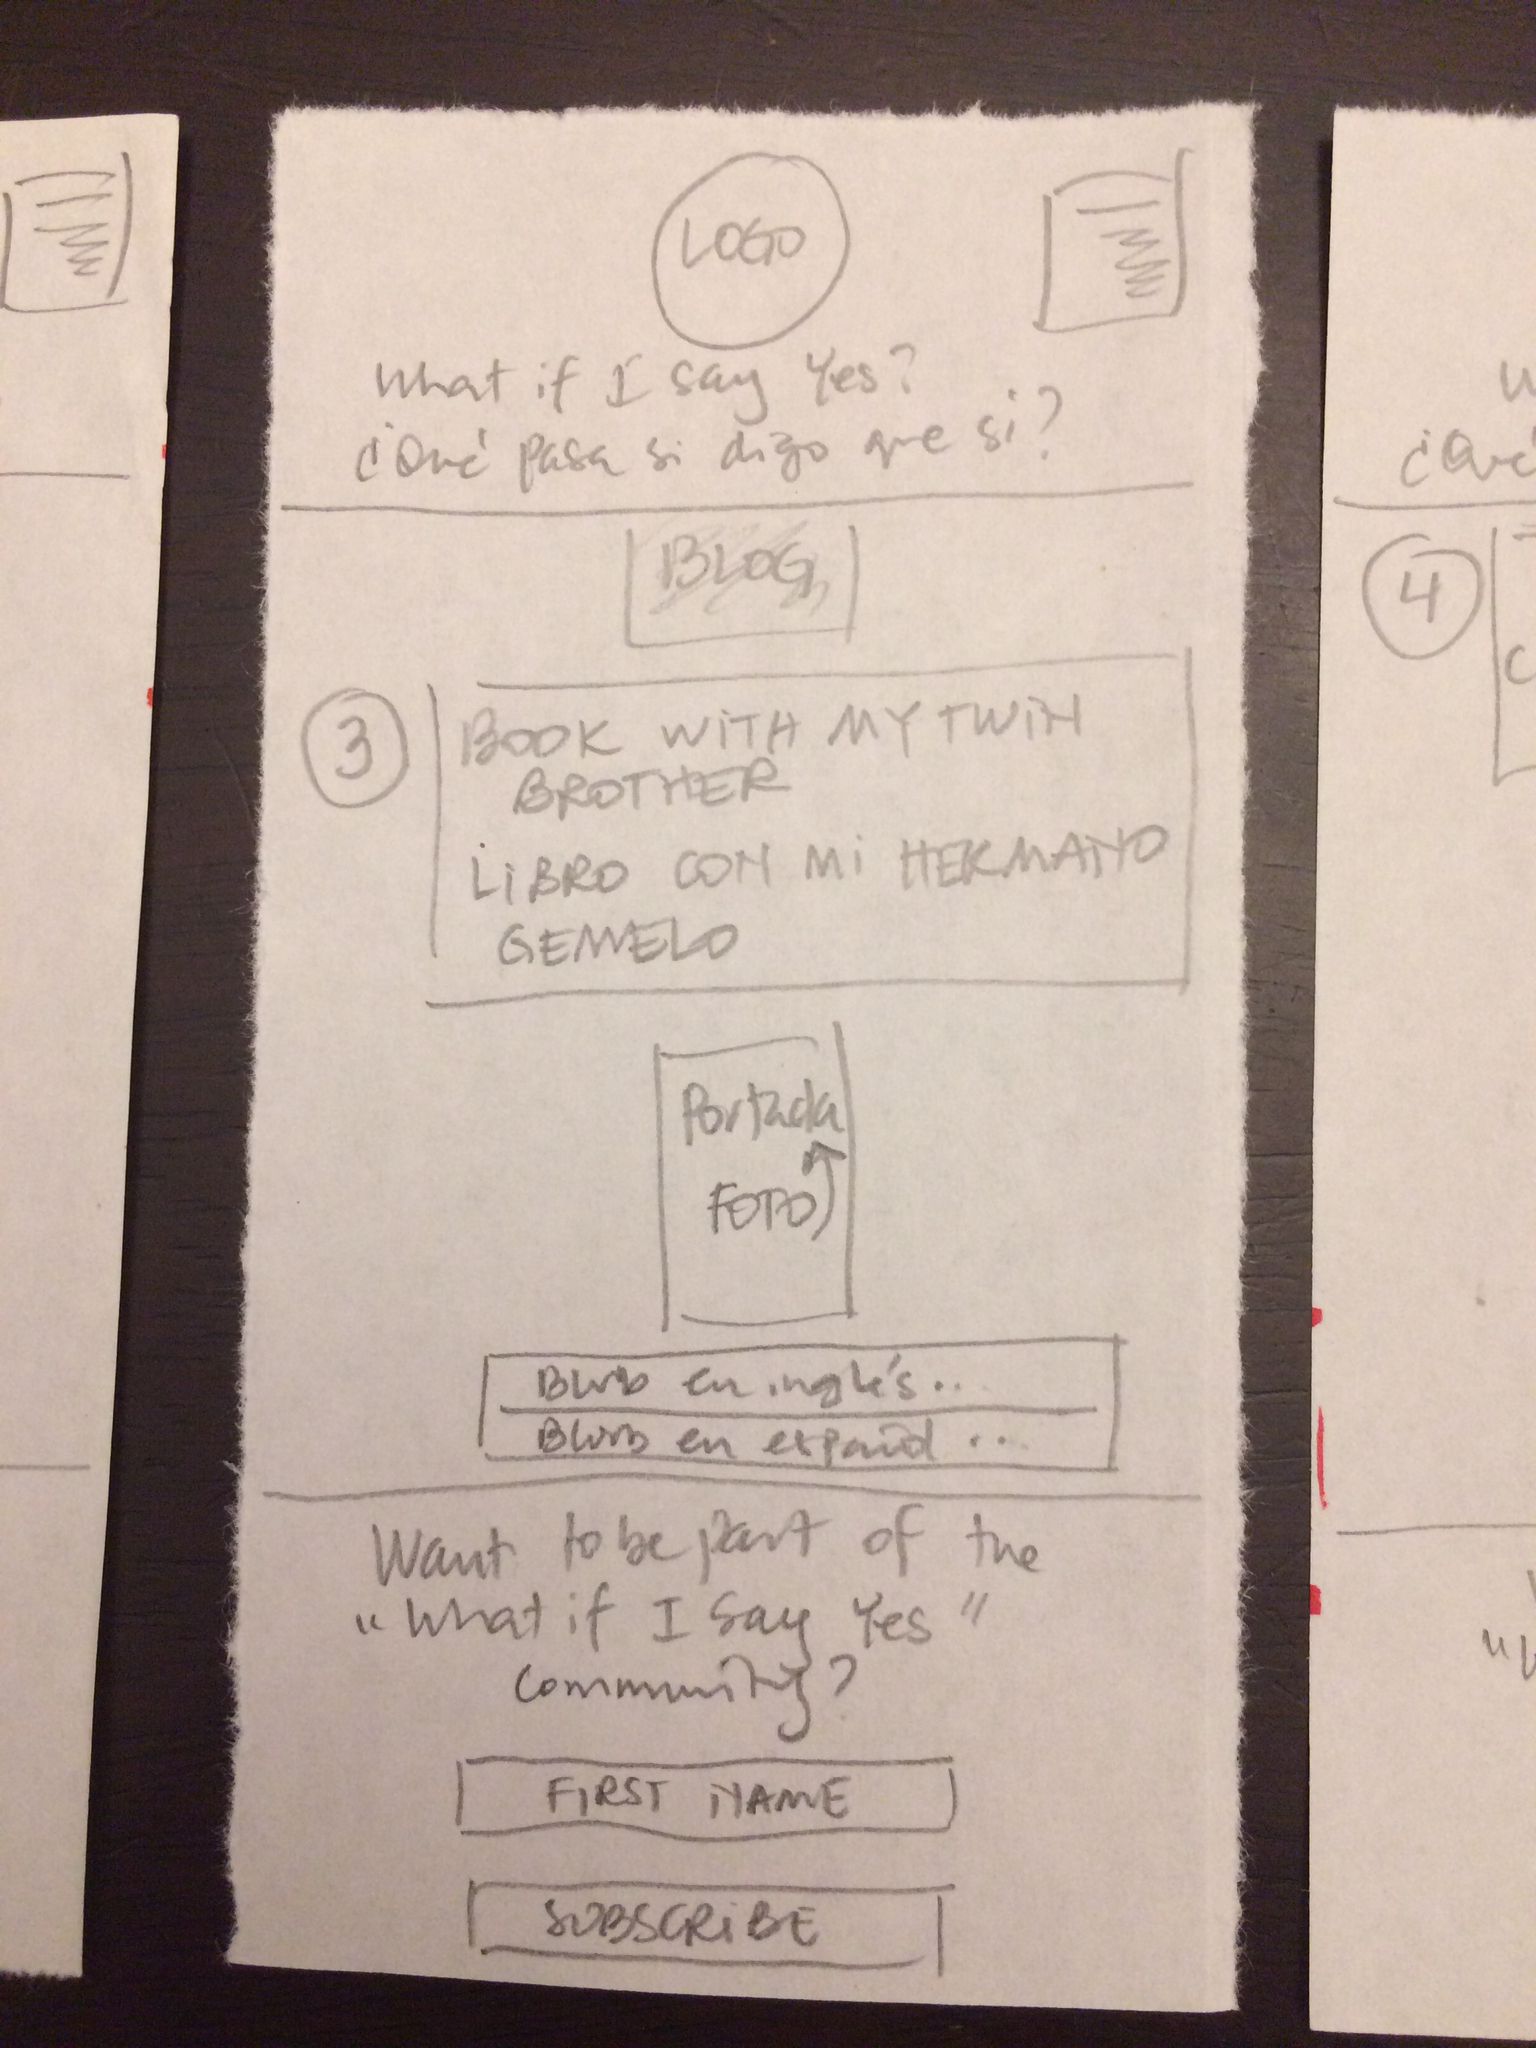 LOGO
What if I say Yes?
¿Qué pasa si digo que si?
BLOG
3
BOOK WITH MY TWIN
BROTHER
LIBRO CON MI HERMANO
GEMELO
Portada
FOTO
Blurb en inglés...
Blurb en español ...
Want to be part of the
"What if I say Yes"
community?
FIRST NAME
SUBSCRIBE
¿Qué
4